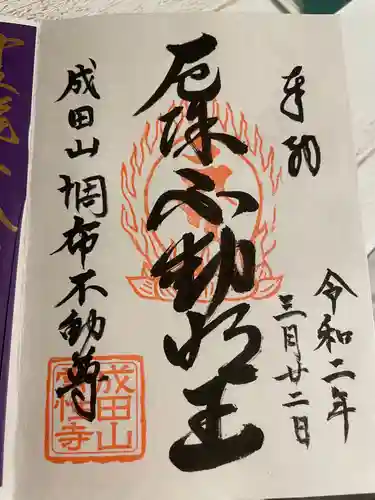 奉納
令和二年
三月廿二日
厄除不動明王
成田山調布不動尊
成田山
寺